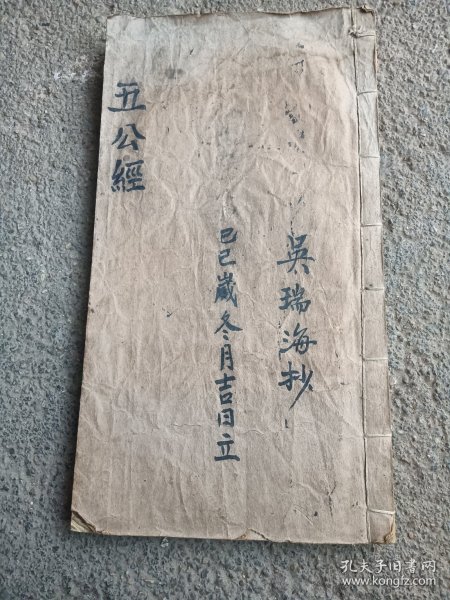 吳瑞海抄
己巳歲冬月吉日立
五公經
孔夫子旧书网
www.kongfz.com